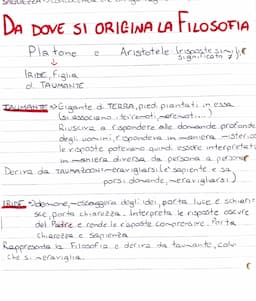 DA DOVE SI ORIGINA LA FILOSOFIA
Platone e Aristotele (risposte simili
significato
IRIDE, figlia
di TAUMANTE
TAUMANTE → Gigante di TERRA, piedi piantati in essa
(si associano: terremoti,
Riusciva a rispondere alle domande profonde
degli uomini, rispondeva in maniera misterio
le risposte potevano quindi essere interpretate
in maniera diversa da persona a persona
Deriva da meravigliarsi (è sapiente e sa
porsi domande, meravigliarsi)
IRIDE → demone, messaggera degli dei, porta luce e schiari
sce, porta chiarezza. Interpreta le risposte oscure
del Padre e rende le risposte comprensive. Porta
chiarezza e sapienza
Rappresenta la Filosofia e deriva da taumante, colui
che si meraviglia.